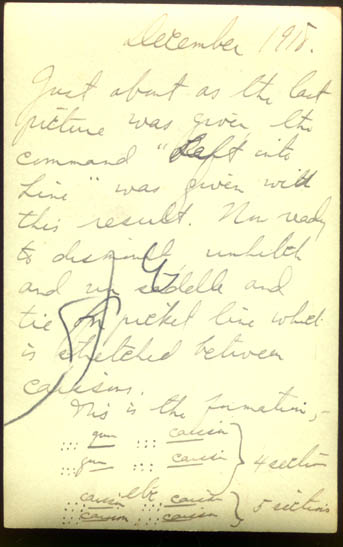 December 1918.
Just about as the last
picture was given the
command "Left into
Line" was given with
this result. Now ready
to dismount, unhitch
and un saddle and
tie on picket line which
is stretched between
caissons.
This is the formation,-
gun caisson
gun caisson } 4 section
etc
caisson caisson
caisson caisson } 5 sections